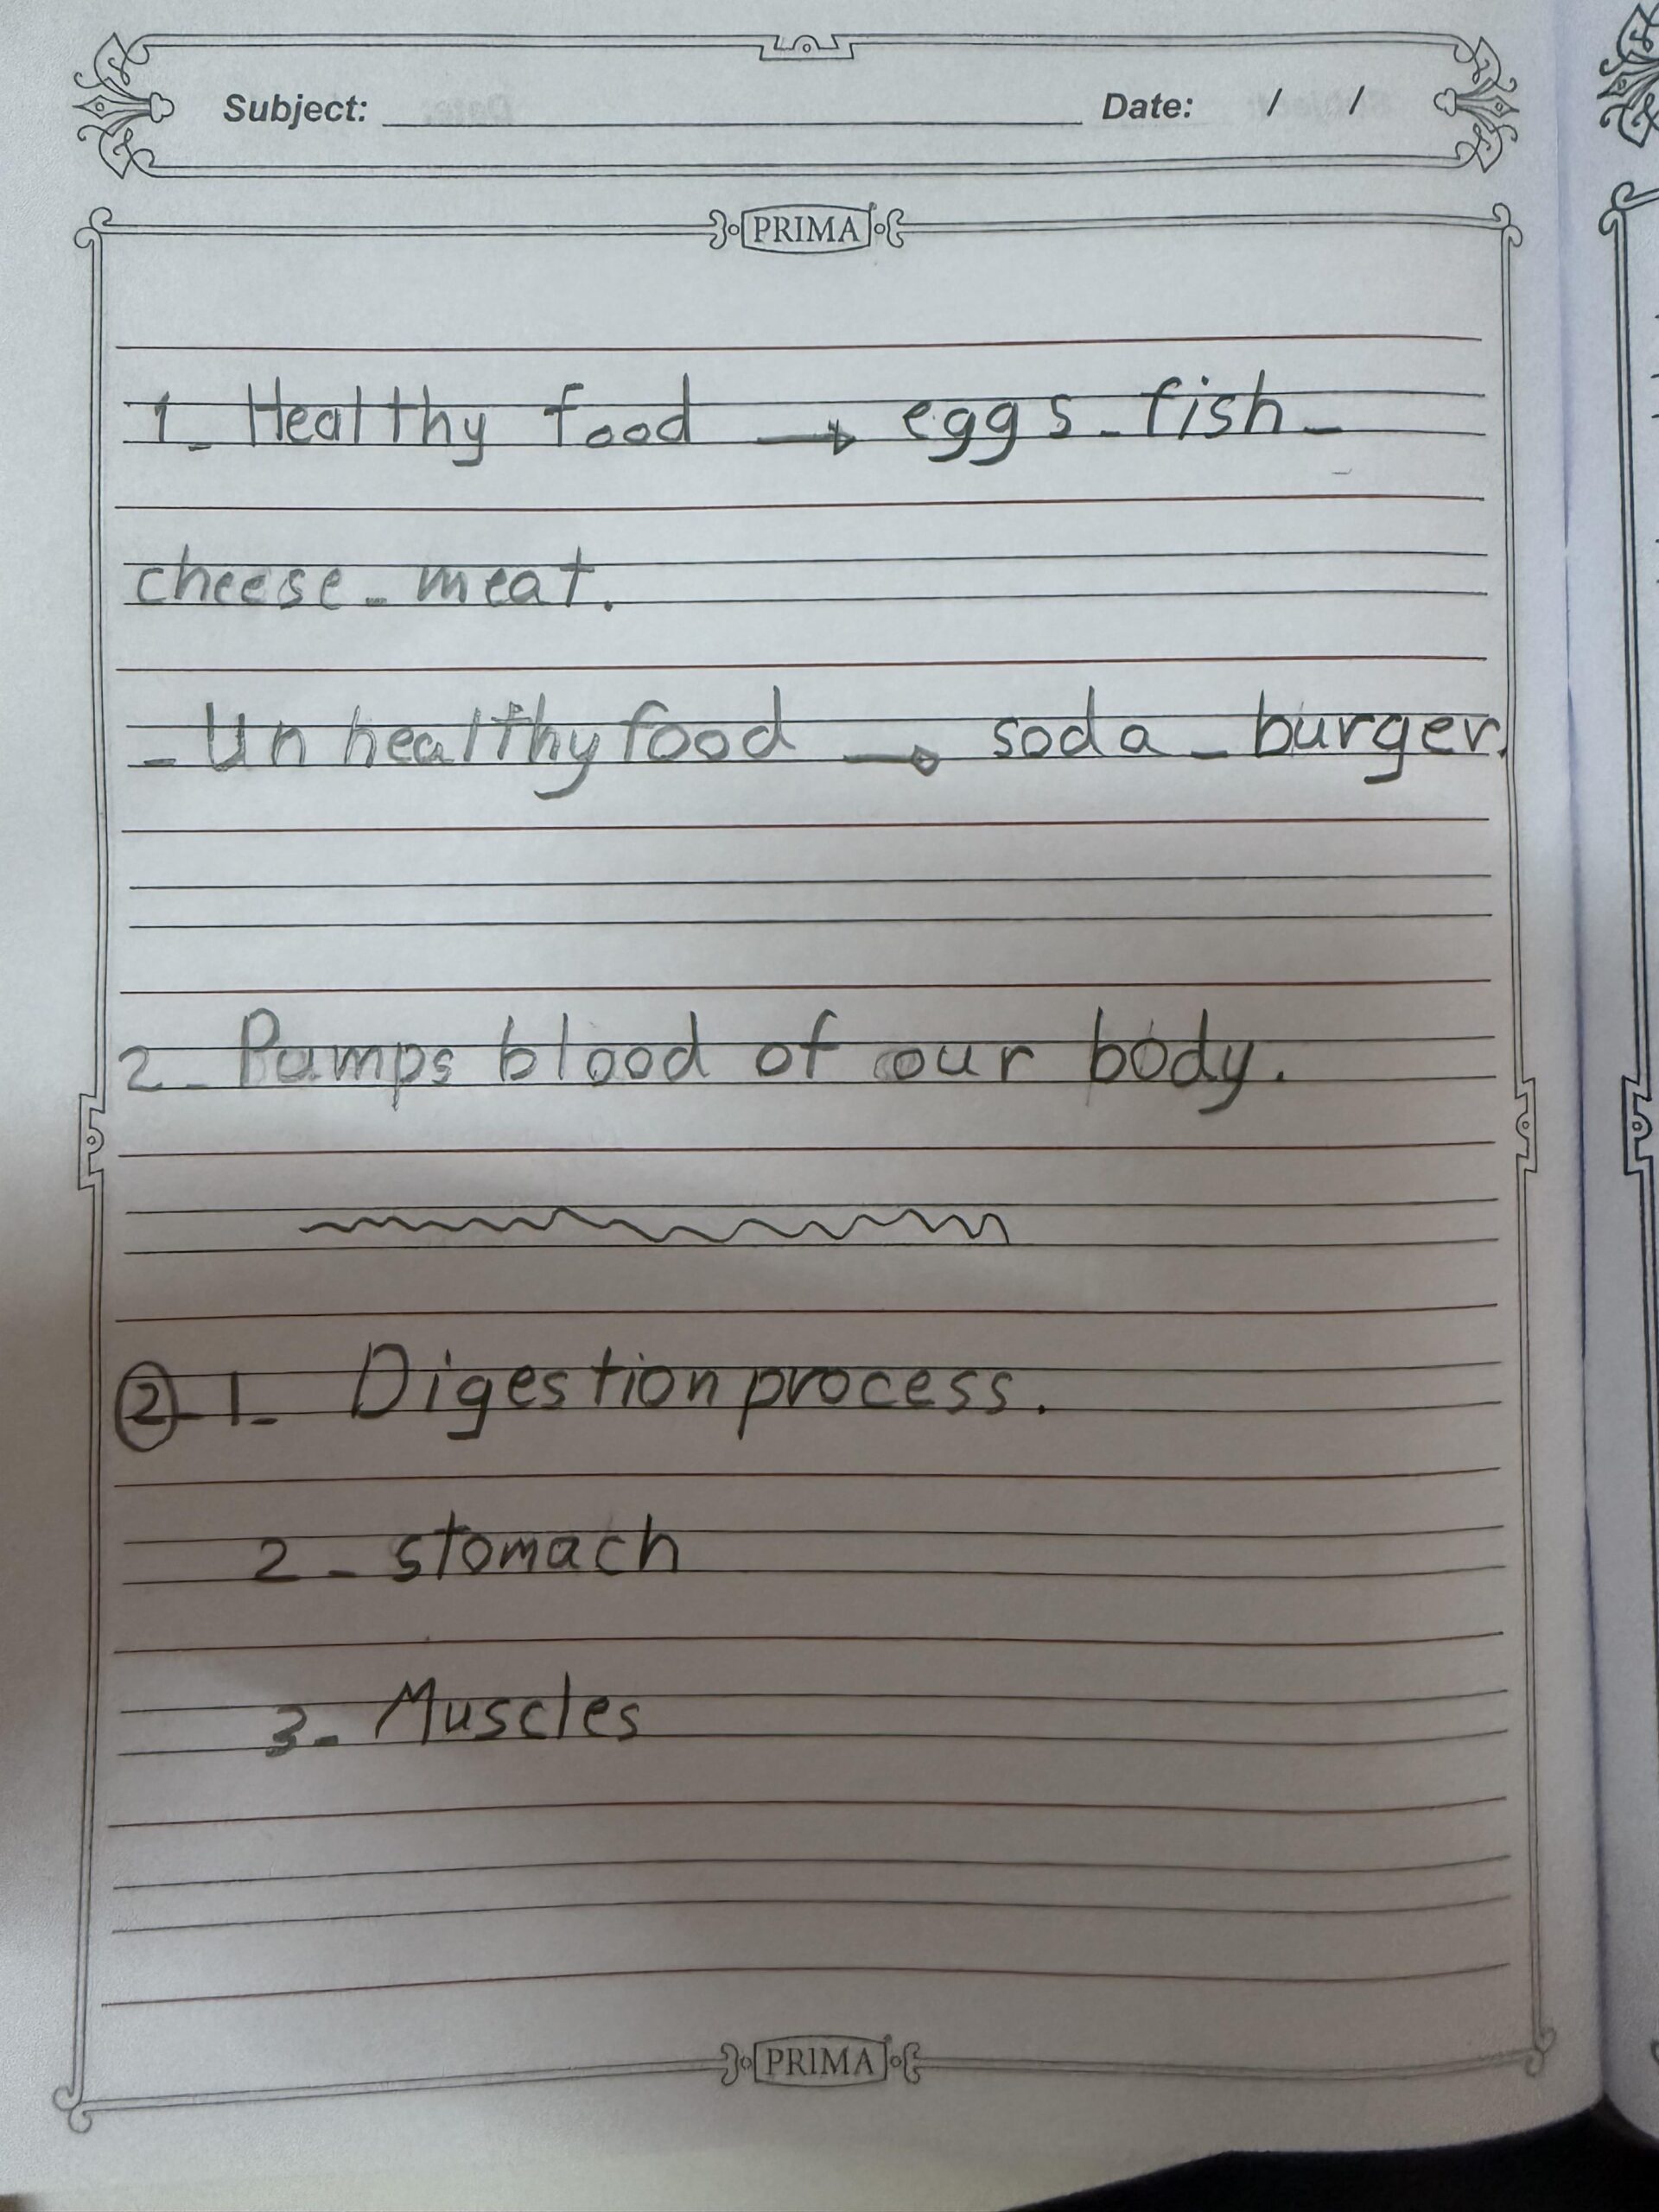 Subject: Date: / /
PRIMA
1_ Healthy food → eggs_fish_
cheese_meat.
_ Un healthy food → soda_burger.
2_ Pumps blood of our body.
② 1_ Digestion process.
2_ stomach
3_ Muscles
PRIMA